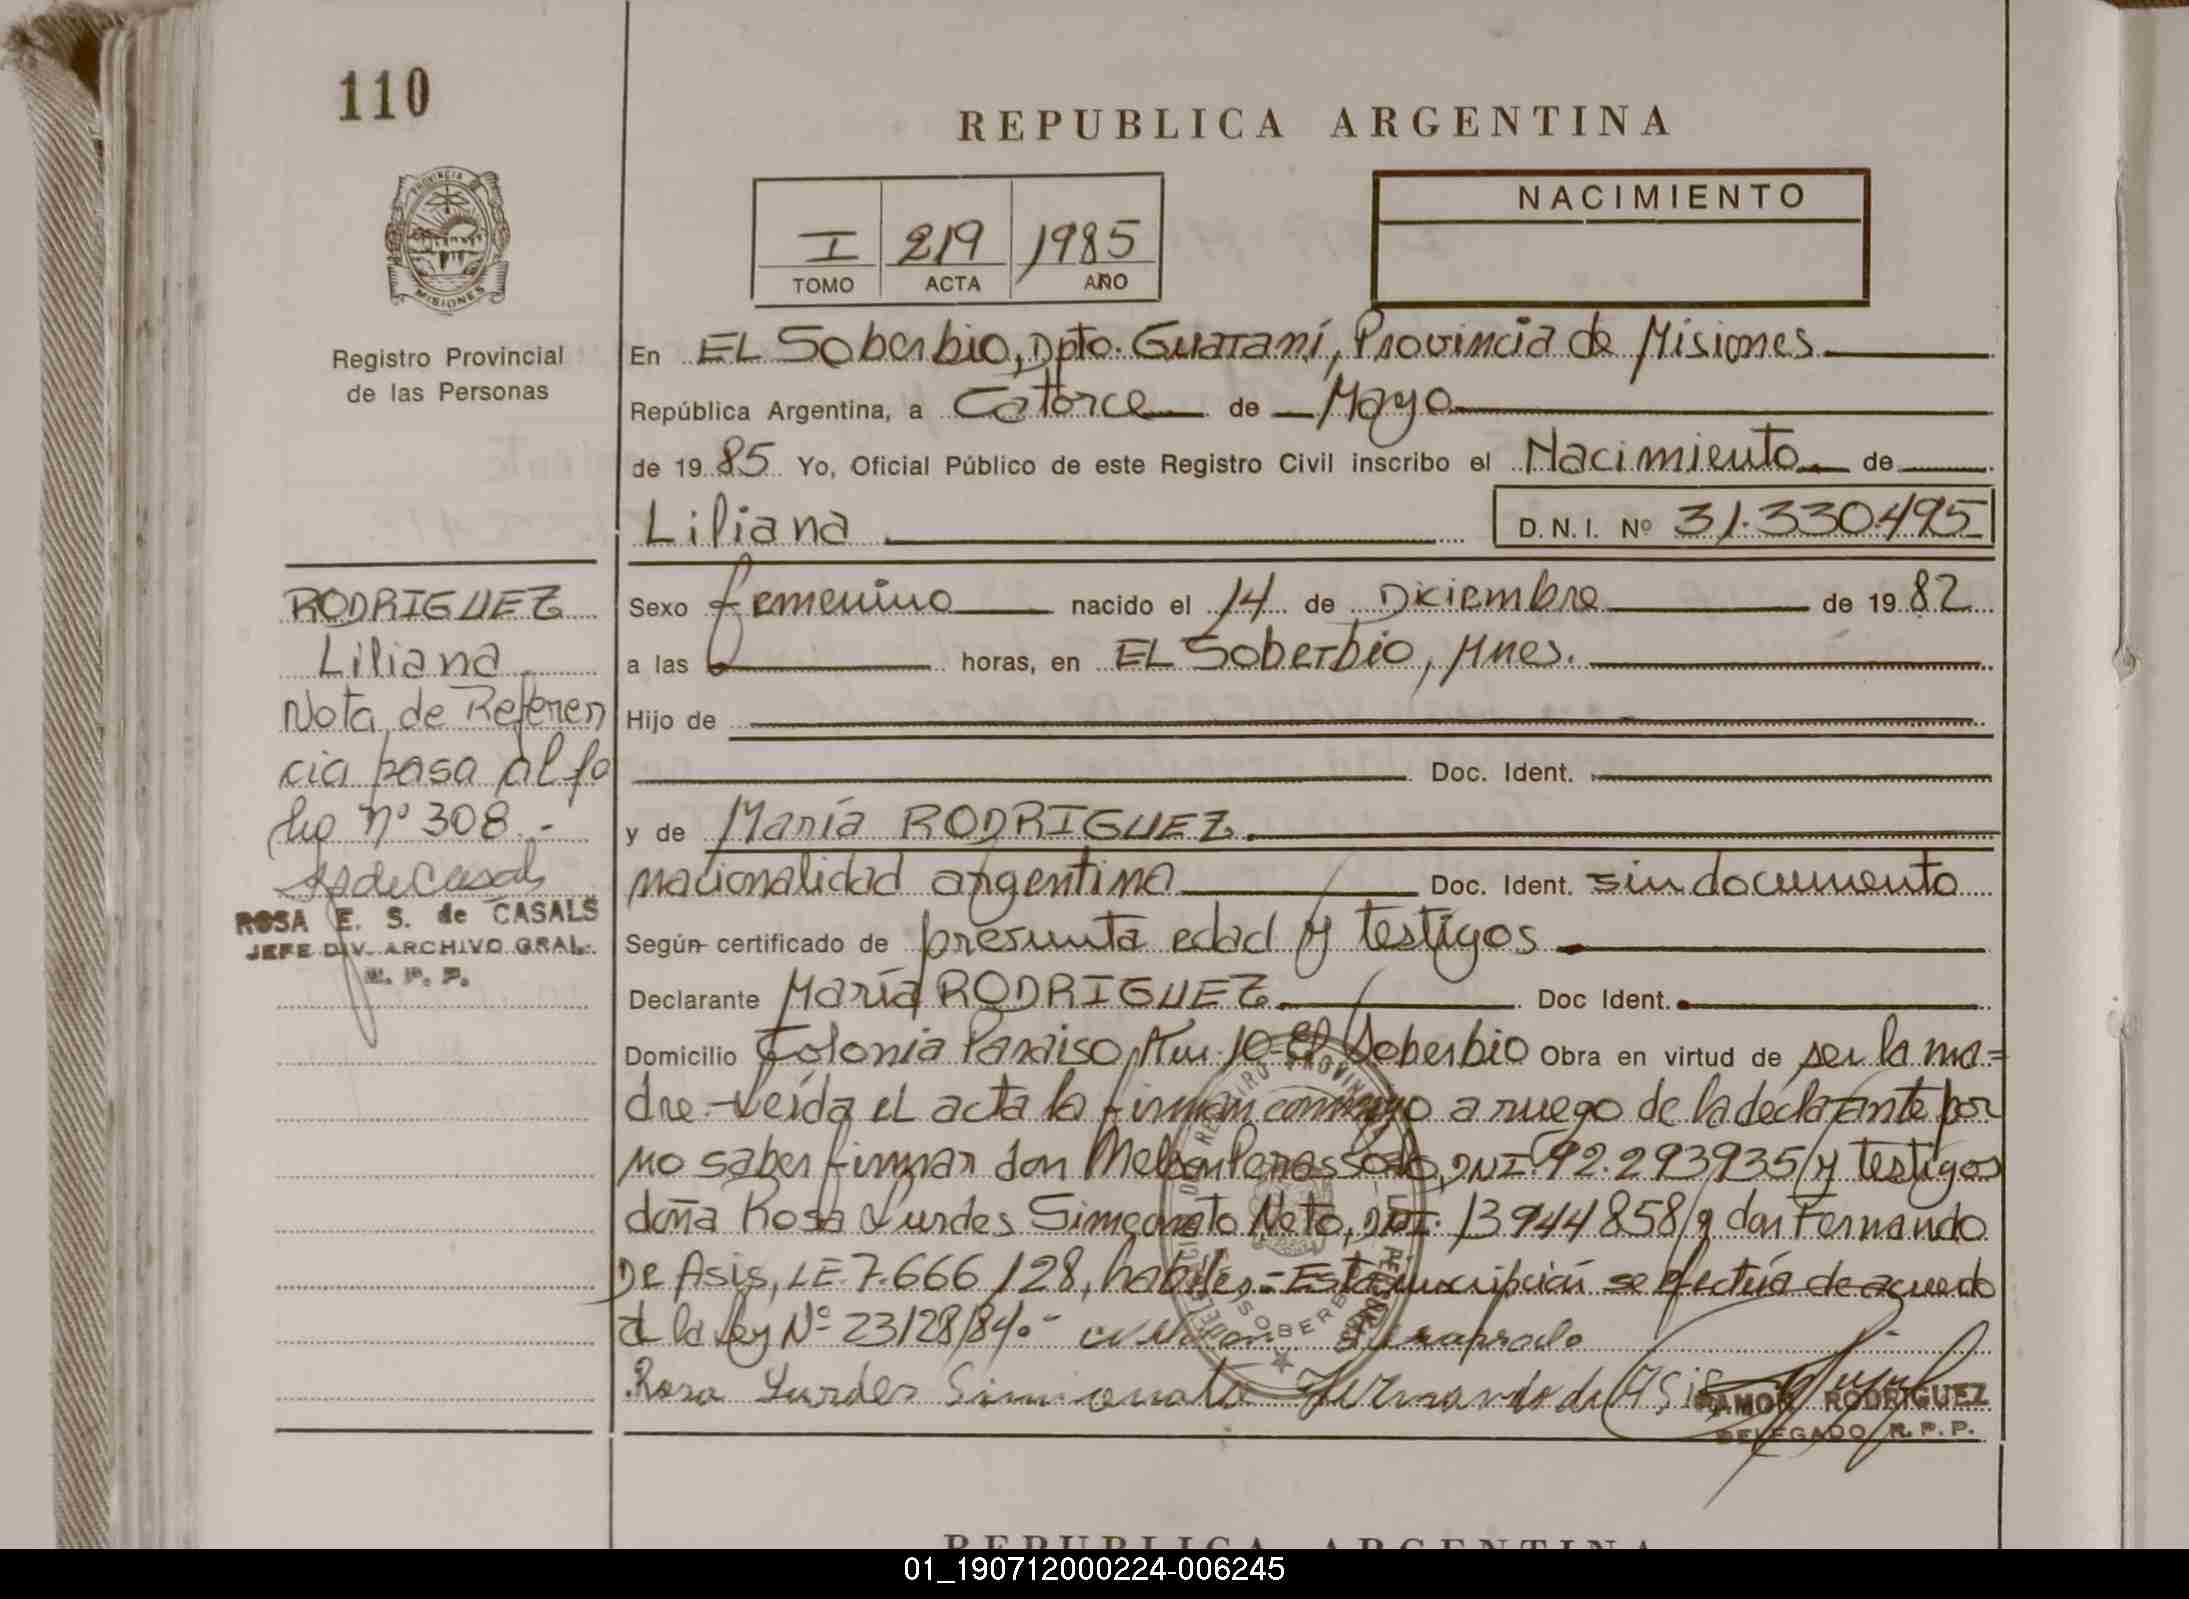 110
REPUBLICA ARGENTINA
PROVINCIA
MISIONES
Registro Provincial
de las Personas
I 219 1985
TOMO ACTA AÑO
NACIMIENTO
En EL Soberbio, Dpto. Guaraní, Provincia de Misiones
República Argentina, a Catorce de Mayo
de 19 85 Yo, Oficial Público de este Registro Civil inscribo el Nacimiento de
Liliana D.N.I. Nº 31.330.495
RODRIGUEZ
Liliana
Nota de Referen
cia pasa al fo
lio nº 308.-
ROSA E. S. de CASALS
JEFE DIV. ARCHIVO GRAL.
R. P. P.
Sexo femenino nacido el 14 de Diciembre de 19 82
a las horas, en EL Soberbio, Mnes.
Hijo de
Doc. Ident.
y de María RODRIGUEZ.
nacionalidad argentina Doc. Ident. sin documento
Según certificado de presunta edad y testigos
Declarante María RODRIGUEZ Doc Ident.
Domicilio Colonia Paraiso, Km. 10-El Soberbio Obra en virtud de ser la ma=
dre.-Leída el acta la firman conmigo a ruego de la declarante por
no saber firmar don DNI. 92.293935/y testigos
doña Rosa Lurdes Simeonato Neto, DNI. 13944858/y don Fernando
De Asis, LE.7.666128, habiles.-Esta inscripción se efectúa de acuerdo
a la ley Nº 23128/84.-
Rosa Lurdes Simionato Fernando de Asis
RAMON RODRIGUEZ
DELEGADO R.P.P.
REPUBLICA ARGENTINA
01_190712000224-006245